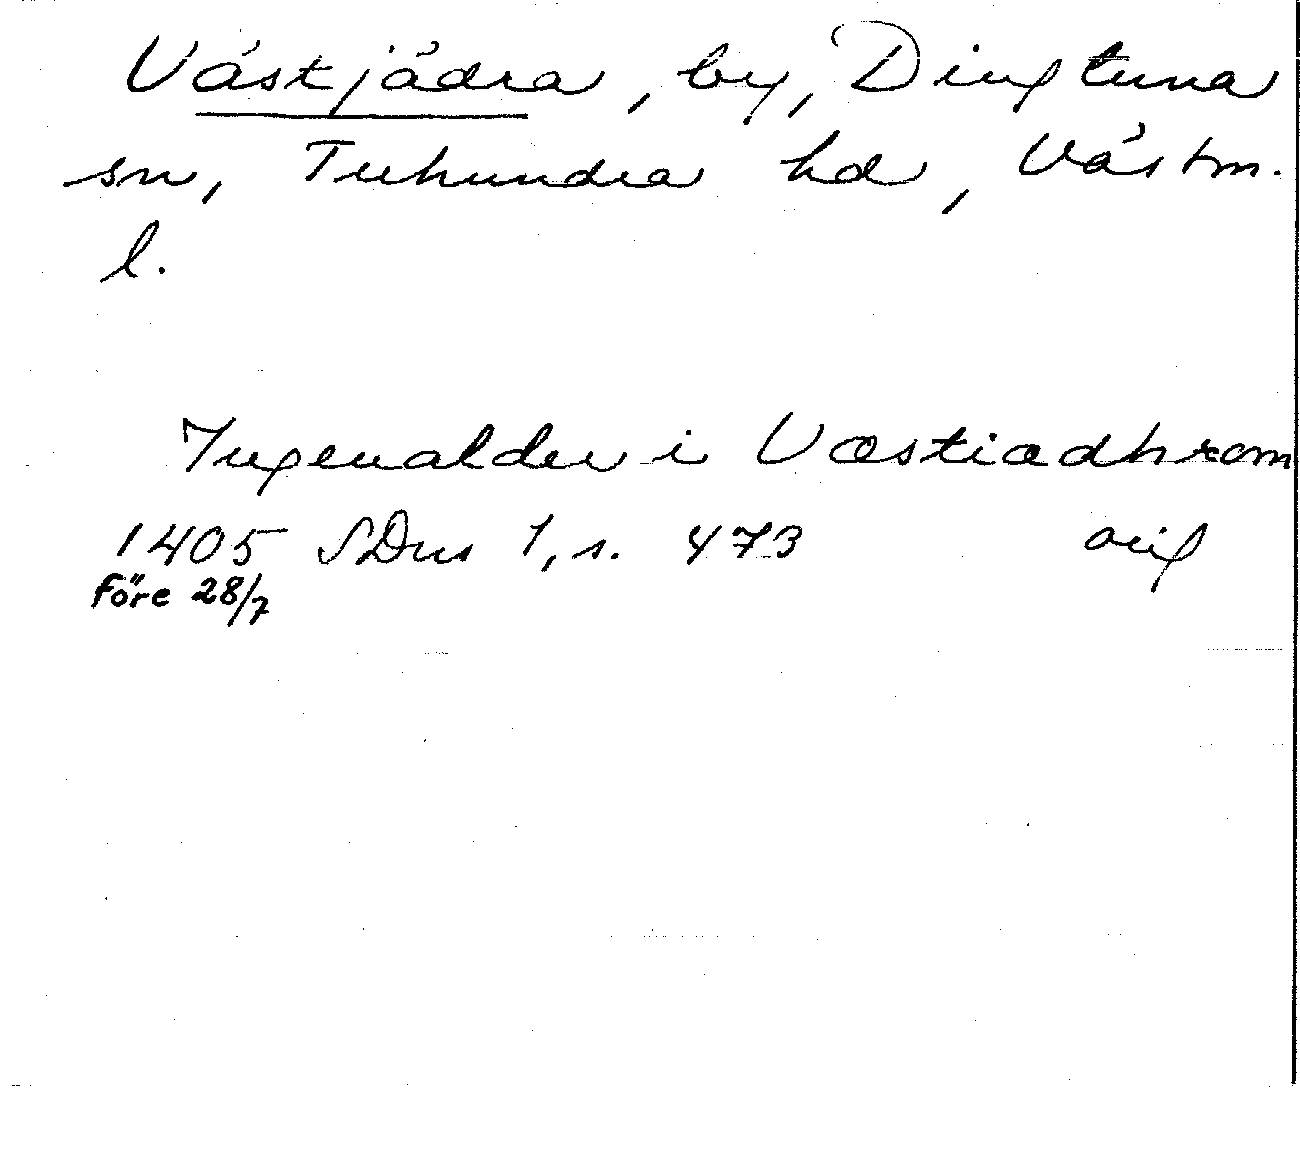 Västjädra, by, Dingtuna
sn, Tuhundra hd, Västm.
l.
Ingewalder i Væstiædhrom
1405 SDns 1, s. 473 orig
före 28/7